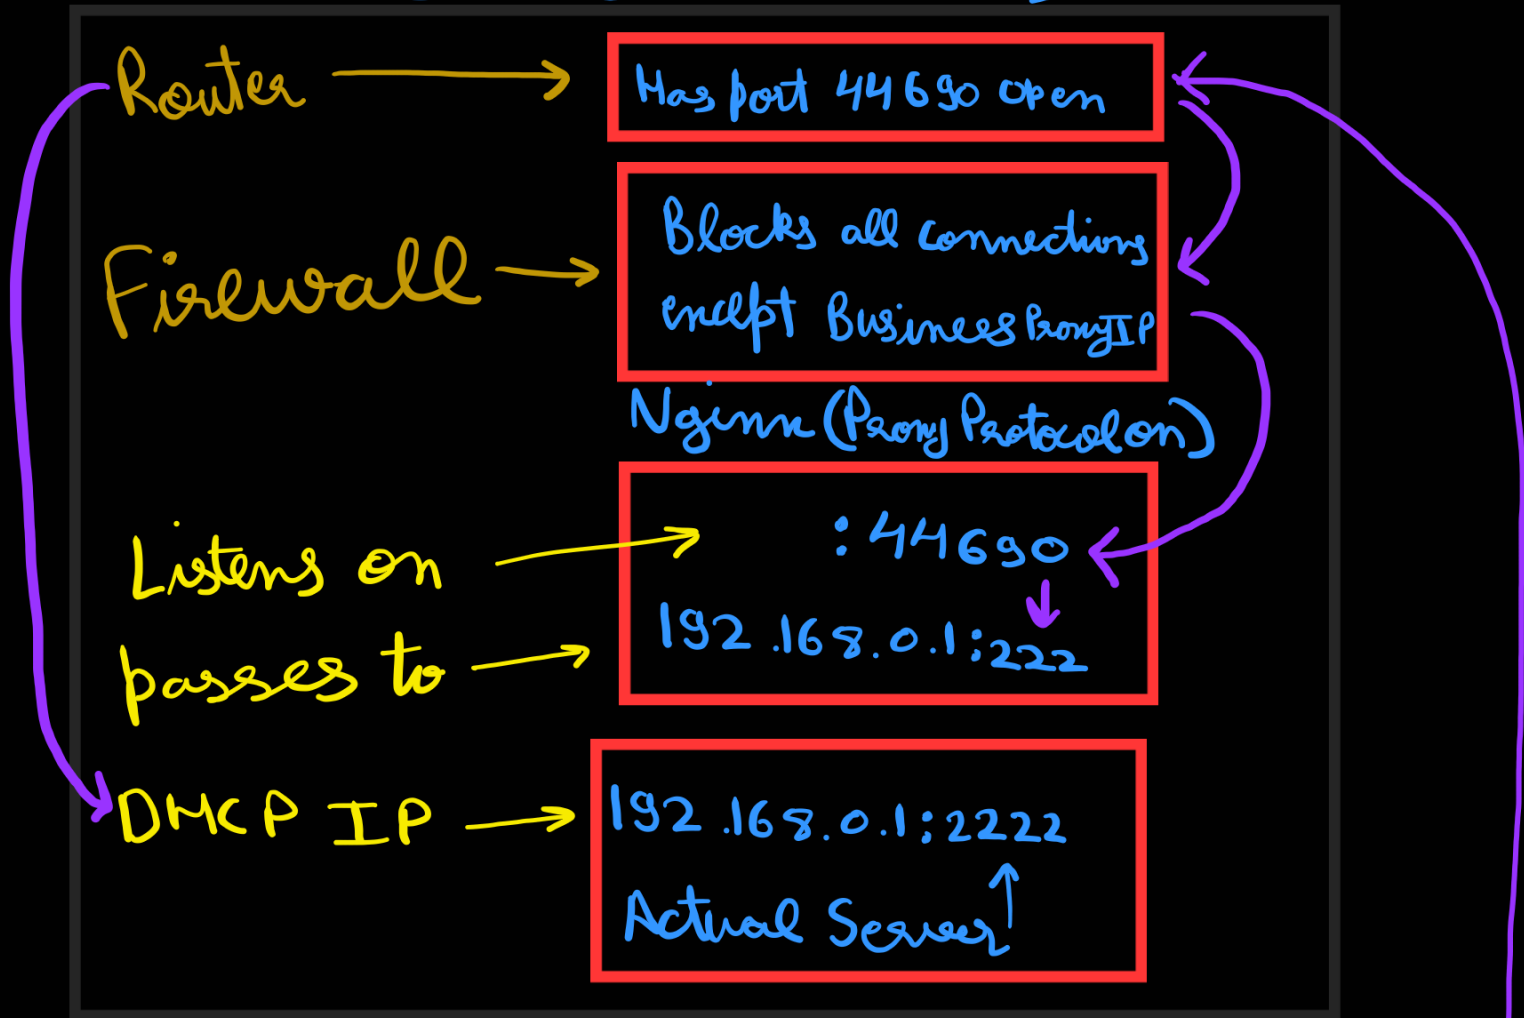 Router
Has port 44690 open
Firewall
Blocks all connections
except Business Proxy IP
Nginx (Proxy Protocol on)
Listens on
:44690
passes to
192.168.0.1:222
DHCP IP
192.168.0.1:2222
Actual Server